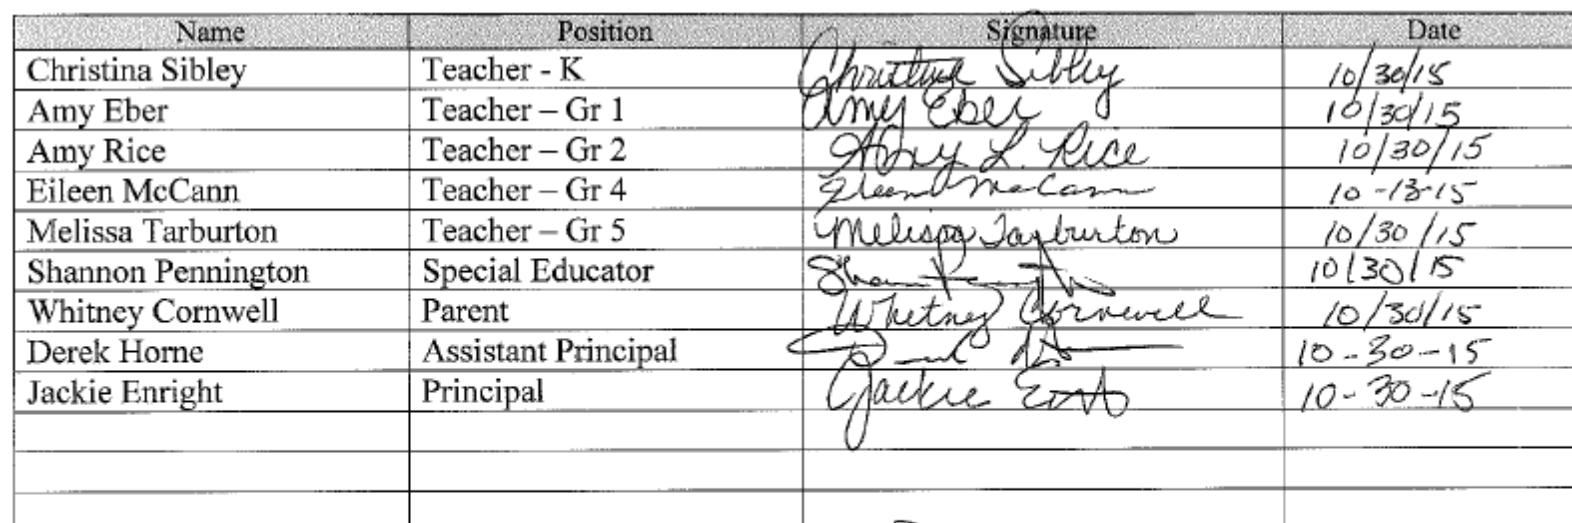 Name Position Signature Date
Christina Sibley Teacher - K Christina Sibley 10/30/15
Amy Eber Teacher – Gr 1 Amy Eber 10/30/15
Amy Rice Teacher – Gr 2 Amy L. Rice 10/30/15
Eileen McCann Teacher – Gr 4 Eileen McCann 10-13-15
Melissa Tarburton Teacher – Gr 5 Melissa Tarburton 10/30/15
Shannon Pennington Special Educator 10/30/15
Whitney Cornwell Parent Whitney Cornwell 10/30/15
Derek Horne Assistant Principal 10-30-15
Jackie Enright Principal Jackie 10-30-15